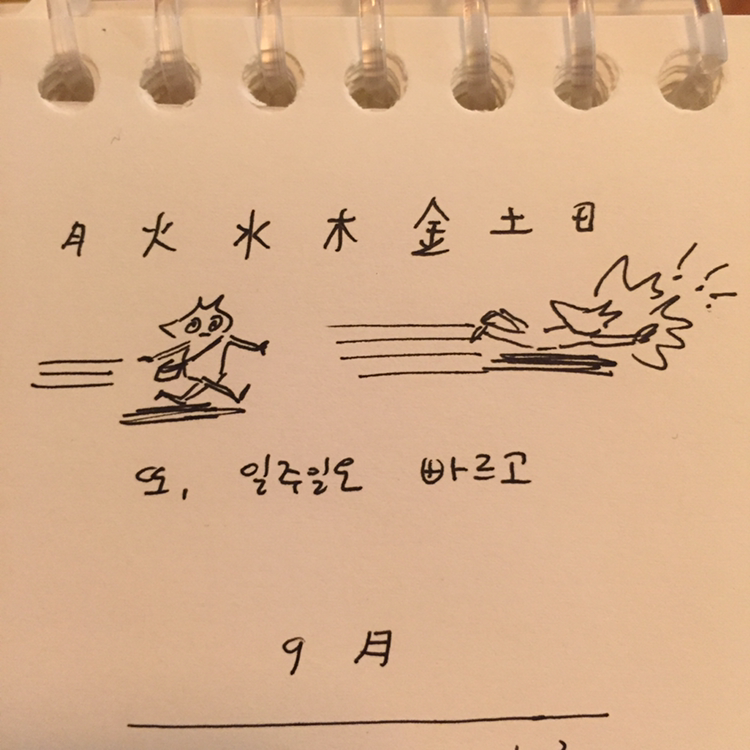 月 火 水 木 金 土 日
또, 일주일오 빠르고
9 月